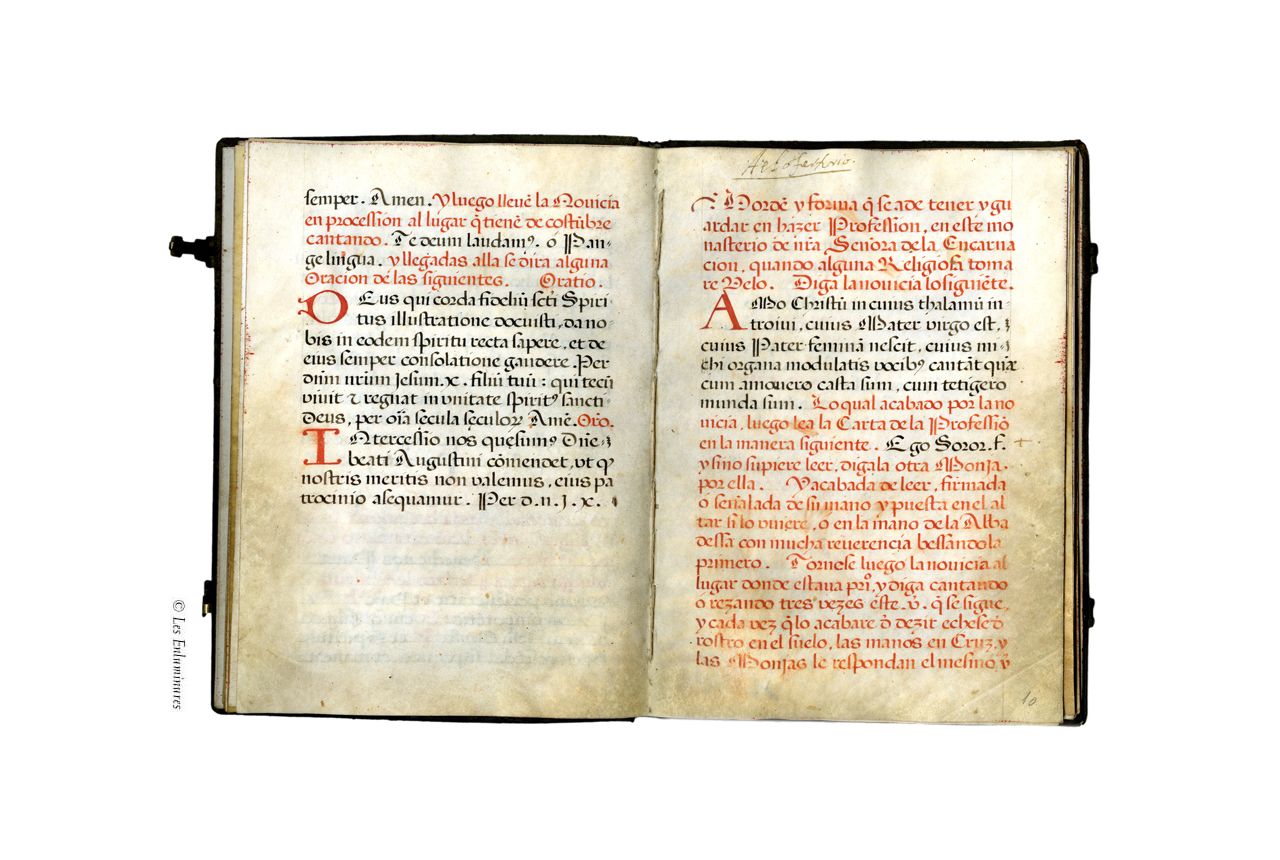 semper. Amen. Y luego lleuē la Nouicia
en procession al lugar q̄ tienē de costūbre
cantando. Te deum laudamꝰ. ó Pan-
ge lingua. y llegadas alla se dira alguna
Oracion de las siguientes. Oratio.
DEus qui corda fideliū scti Spiri
tus illustratione docuisti, da no
bis in eodem spiritu recta sapere, et de
eius semper consolatione gaudere. Per
dñm nrum Jesum. x. filiū tuū: qui tecū
viuit et regnat in vnitate spiritꝰ sancti
Deus, per oīa secula seculorꝝ Amē. Oro.
INtercessio nos quesumꝰ Dñe
beati Augustini cōmendet, vt q
nostris meritis non valemus, eius pa
trocinio asequamur. Per d. n. J. x.
Hordē y forma q̄ se a de tener y gu
ardar en hazer Profession, en este mo
nasterio de nra Señora de la Encarna
cion, quando alguna Religiosa toma
re Velo. Diga la nouicia lo siguiēte.
AMo Christū in cuius thalamū in-
troiui, cuius Mater virgo est, ꝫ
cuius Pater feminā nescit, cuius mi-
chi organa modulatis vocibꝰ cantāt quæ
cum amauero casta sum, cum tetigero
munda sum. Lo qual acabado por la no
uicia, luego lea la Carta de la Professiō
en la manera siguiente. Ego Soror. f. +
y si no supiere leer, digala otra Monja.
por ella. Y acabada de leer, firmada
ó señalada de su mano y puesta en el al
tar si lo vuiere, ó en la mano de la Aba
dessa con mucha reuerencia bessandola
primero. Tornese luego la nouicia al
lugar donde estaua pri°, y diga cantando
o rezando tres vezes éste. v. q̄ se sigue,
y cada vez q̄ lo acabare ð dezir echese ð
rostro en el suelo, las manos en Cruz, y
las Monjas le respondan el mesmo v
10
© Les Enluminures